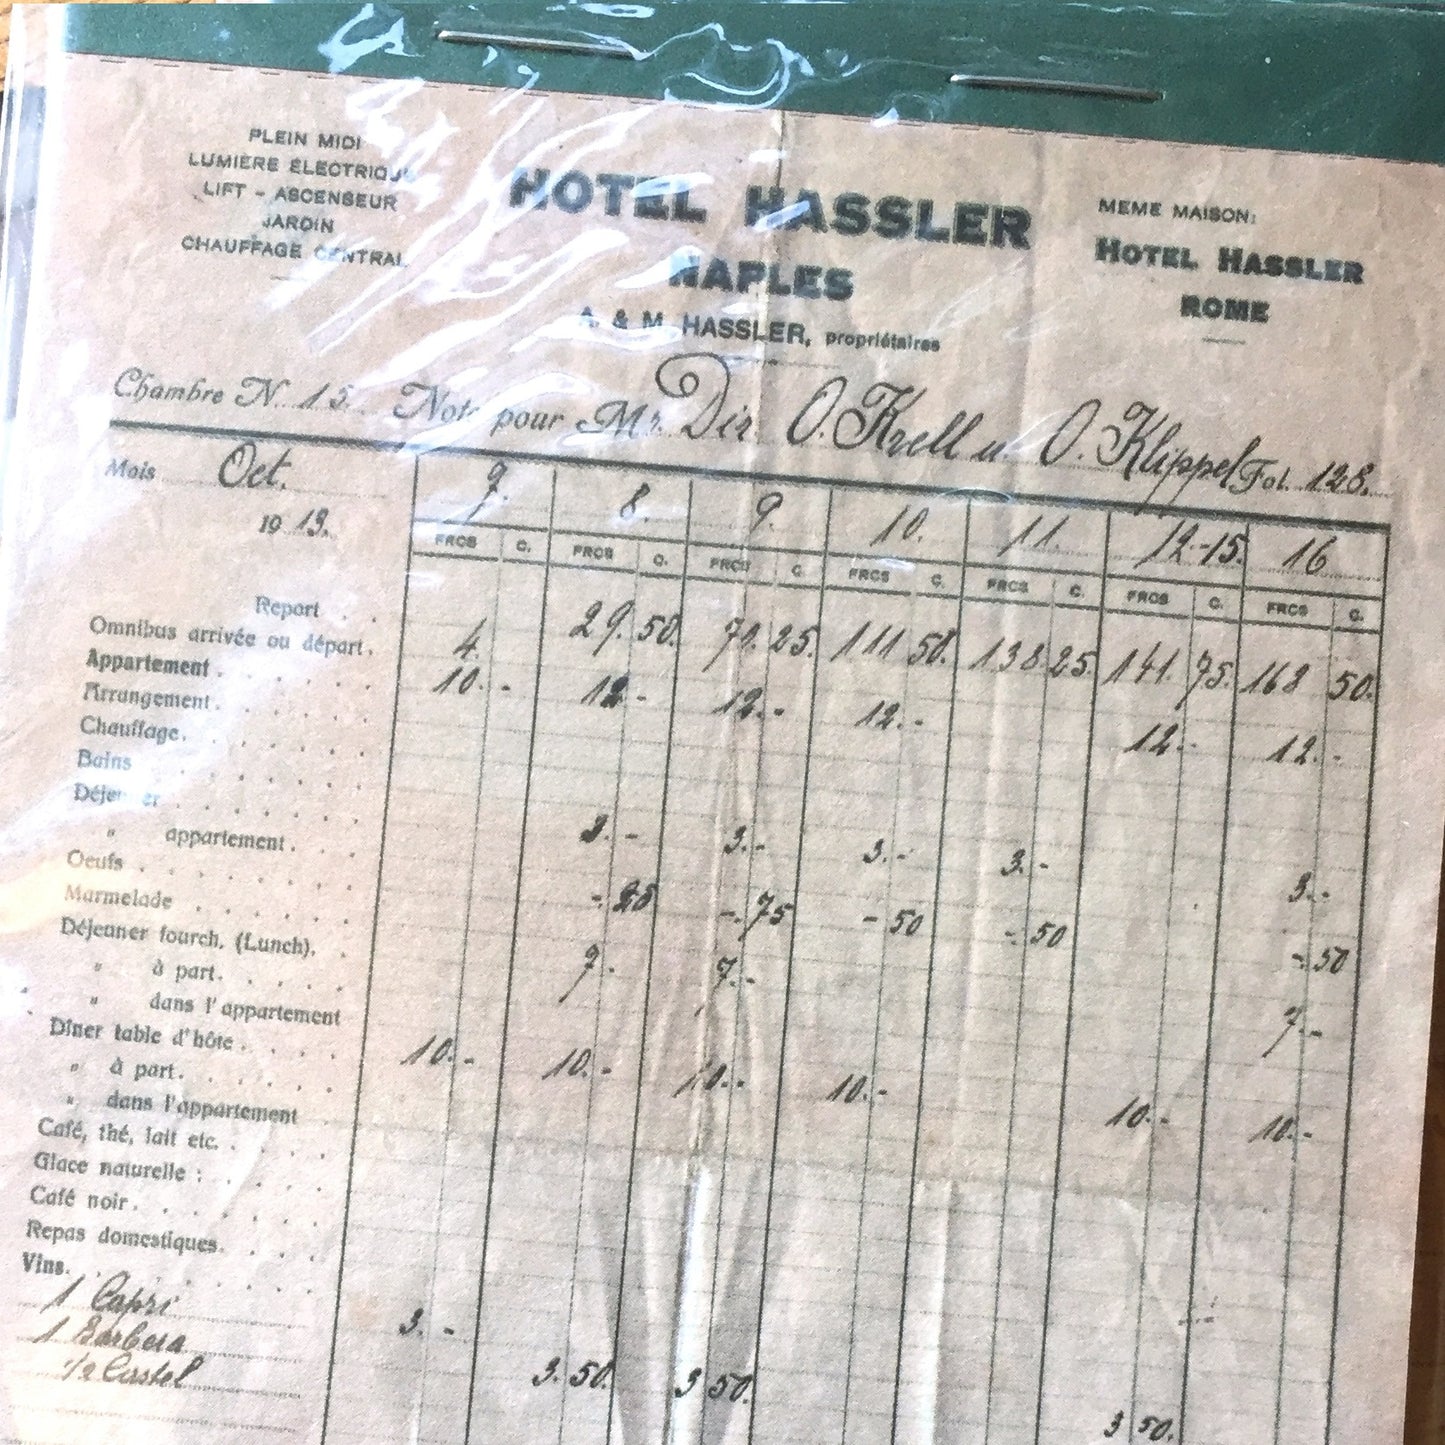 PLEIN MIDI
LUMIÈRE ÉLECTRIQUE
LIFT - ASCENSEUR
JARDIN
CHAUFFAGE CENTRAL
HOTEL HASSLER
NAPLES
A. & M. HASSLER, propriétaires
MEME MAISON:
HOTEL HASSLER
ROME
Chambre N. 15. Note pour Mr. Dir. O. Krell u. O. Klippel Fol. 128.
Mois Oct. 7. 8. 9. 10. 11. 12.-15. 16
1913.
FRCS C. FRCS C. FRCS C. FRCS C. FRCS C. FRCS C. FRCS C.
Report . . 29. 50. 70. 25. 111 50. 138 25 141. 75. 168 50.
Omnibus arrivée ou départ. 4.
Appartement . 10. - 12 - 12. - 12. - 12. - 12. -
Arrangement.
Chauffage.
Bains
Déjeuner 3. - 3. - 3. - 3. - 3. -
" appartement.
Oeufs . -. 25 -. 75 - 50 -. 50 -. 50
Marmelade
Déjeuner fourch. (Lunch). 7. - 7. - 7. -
" à part.
" dans l'appartement
Dîner table d'hôte . 10. - 10. - 10. - 10. - 10. - 10. -
" à part.
" dans l'appartement
Café, thé, lait etc.
Glace naturelle :
Café noir.
Repas domestiques.
Vins.
1 Capri 3. -
1 Barbera 3. 50. 3 50.
1/2 Castel 3 50.